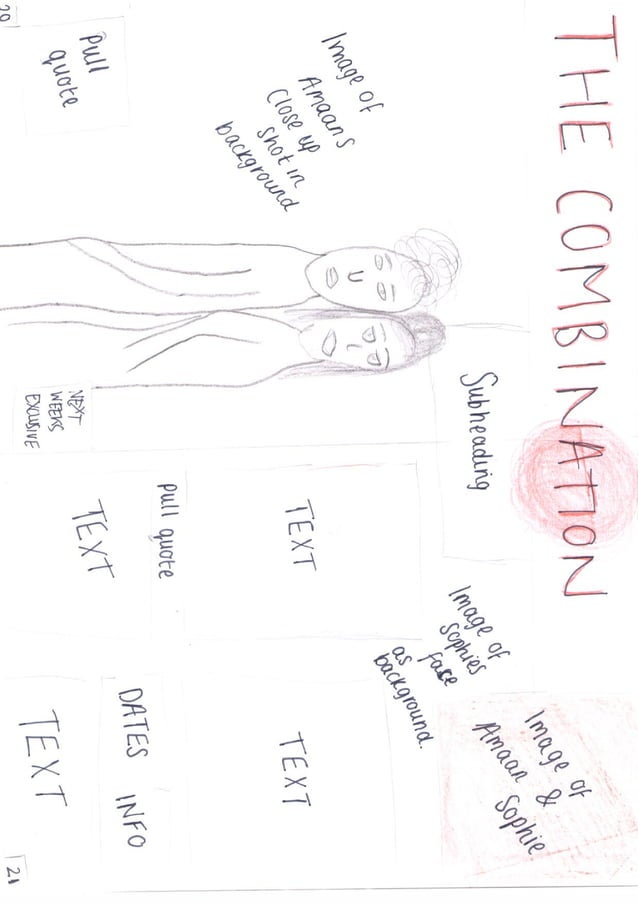 THE COMBINATION
Image of
Amaans
Close up
shot in
background
Pull
quote
20
Subheading
NEXT
WEEKS
EXCLUSIVE
TEXT
pull quote
TEXT
Image of
Sophies
face
as
background.
Image of
Amaan &
Sophie
TEXT
DATES INFO
TEXT
21